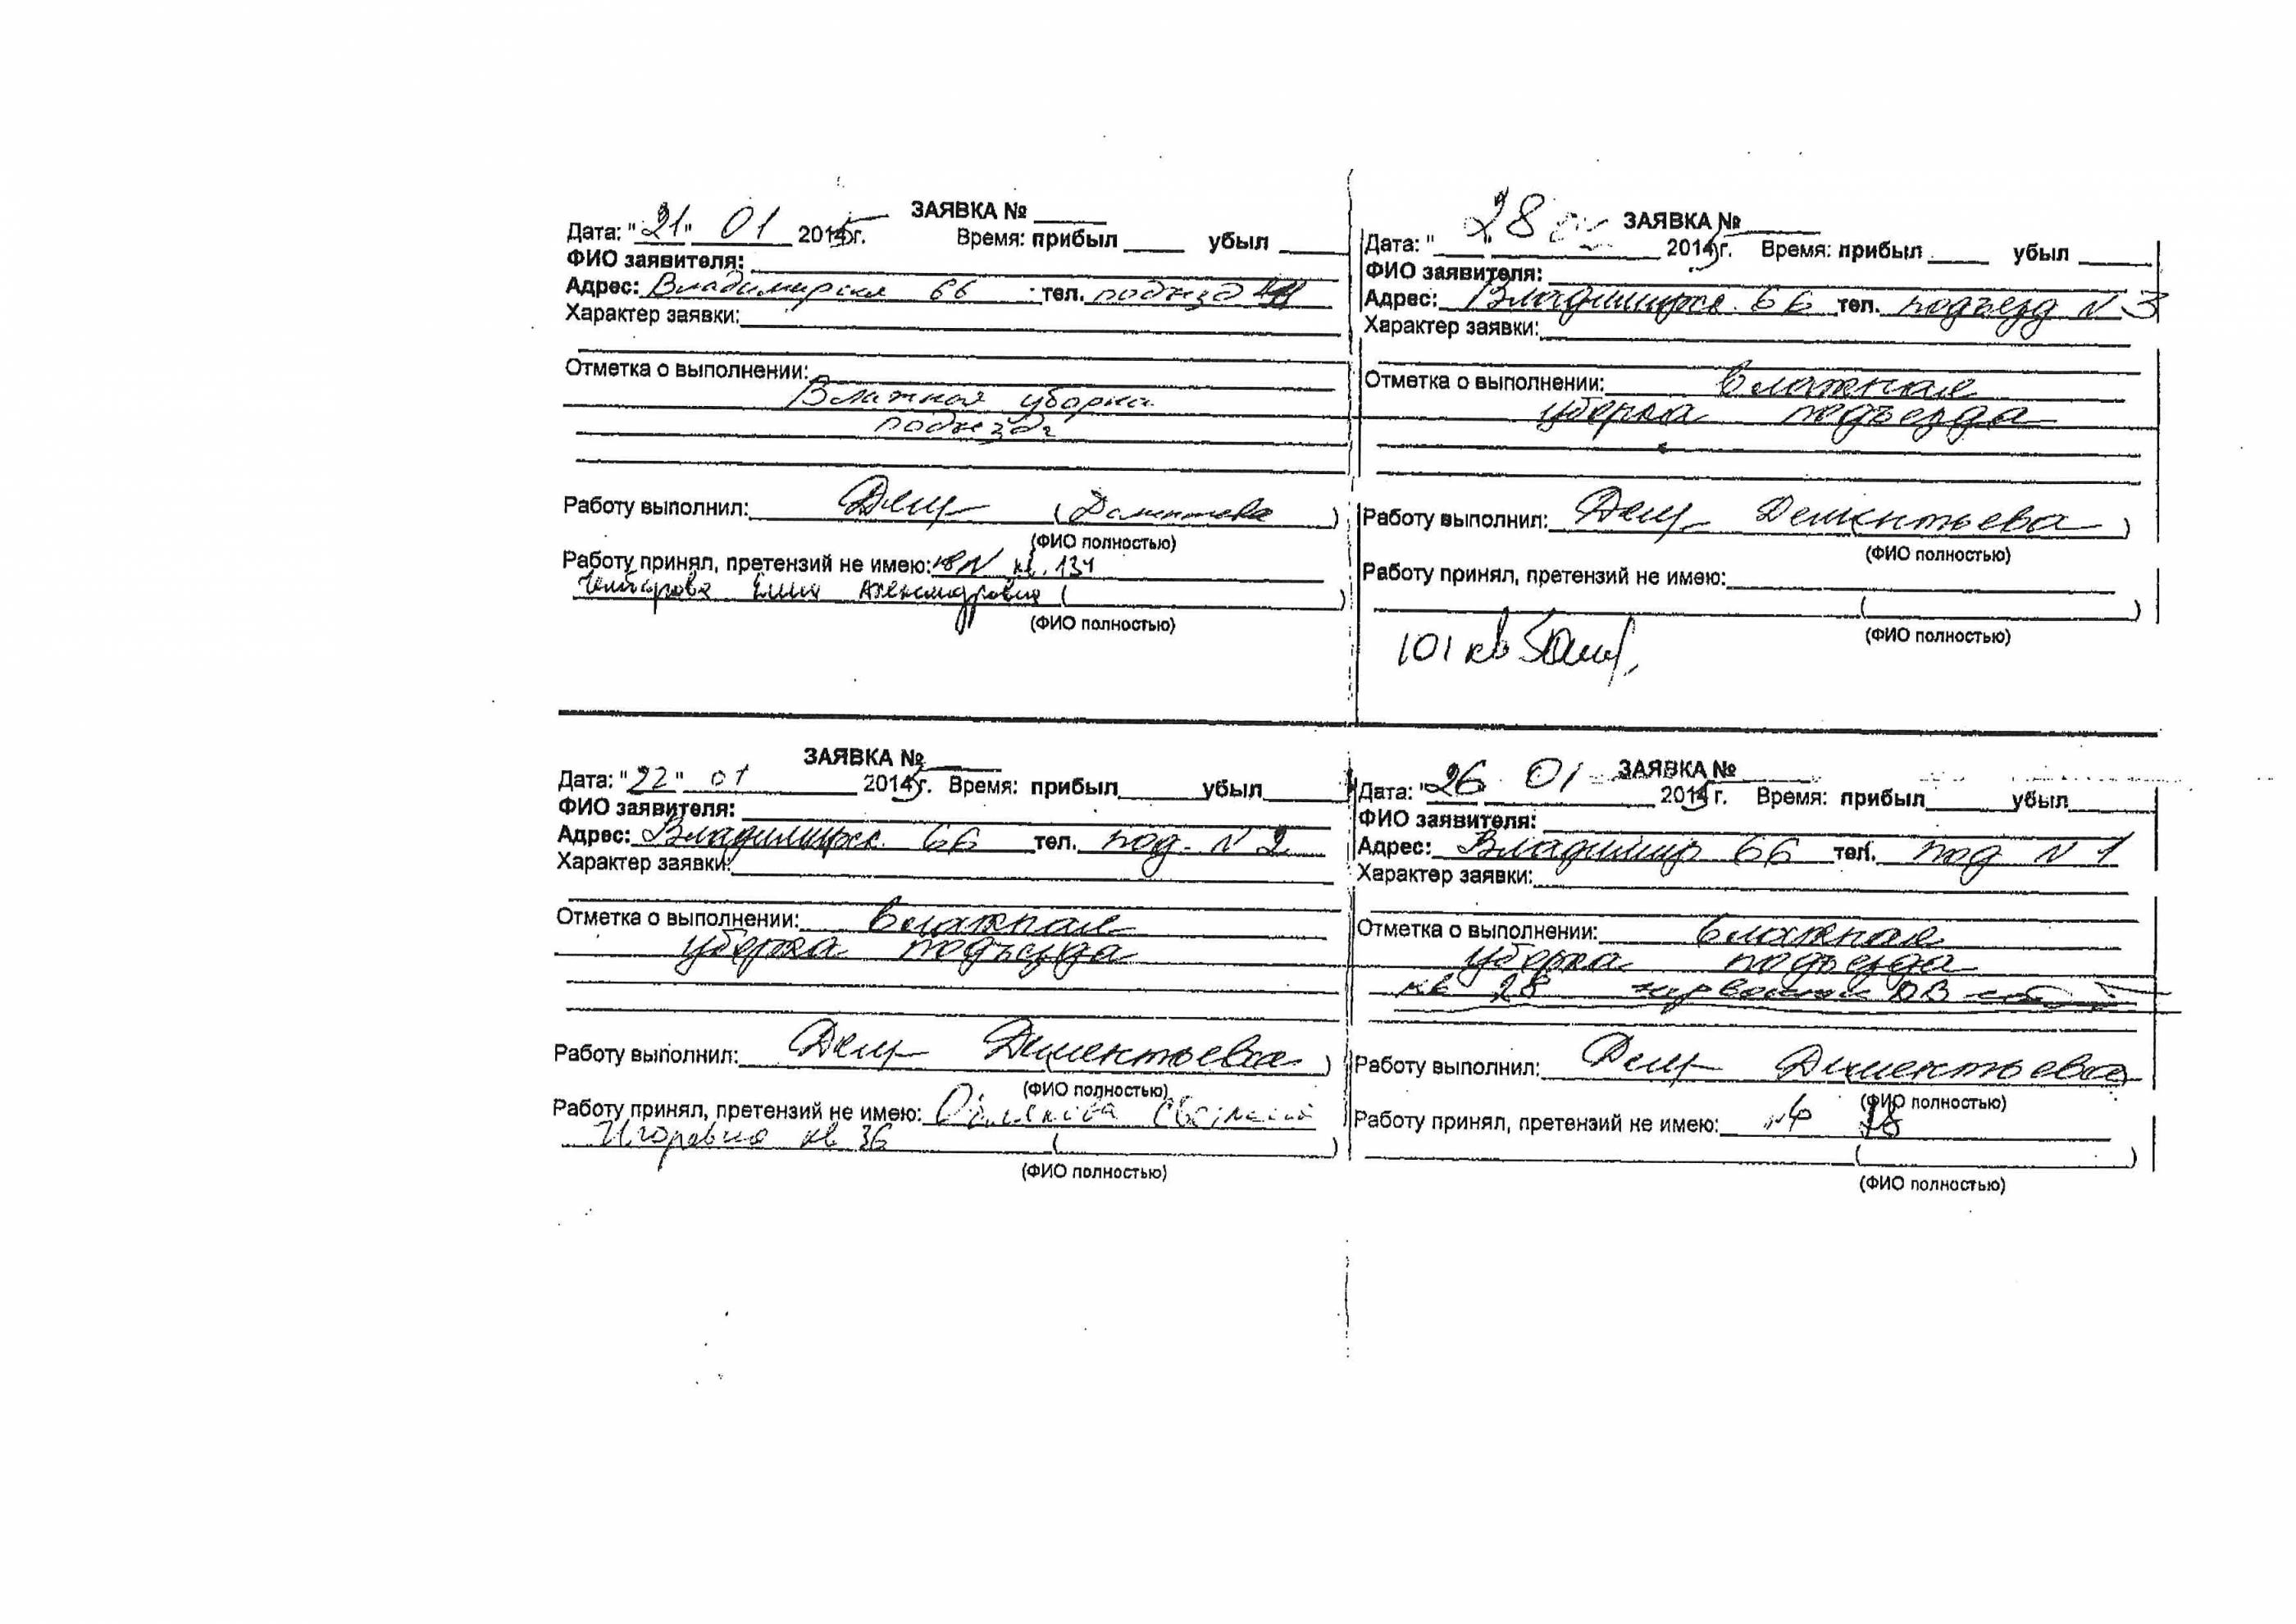 ЗАЯВКА №
Дата: "21" 01 2015г. Время: прибыл убыл
ФИО заявителя:
Адрес: Владимирская 66 тел. подъезд
Характер заявки:
Отметка о выполнении:
Влажная уборка
подъезда
Работу выполнил: Дем (Дементьева)
(ФИО полностью)
Работу принял, претензий не имею: кв. 134
Елена Александровна ( )
(ФИО полностью)
ЗАЯВКА №
Дата: "28 01 2015г. Время: прибыл убыл
ФИО заявителя:
Адрес: Владимирск. 66 тел. подъезд N 3
Характер заявки:
Отметка о выполнении: влажная
уборка подъезда
Работу выполнил: Дем Дементьева)
(ФИО полностью)
Работу принял, претензий не имею:
( )
(ФИО полностью)
101 кв
ЗАЯВКА №
Дата: "22" 01 2015г. Время: прибыл убыл
ФИО заявителя:
Адрес: Владимирск. 66 тел. под. N 2
Характер заявки:
Отметка о выполнении: влажная
уборка подъезда
Работу выполнил: Дем Дементьева)
(ФИО полностью)
Работу принял, претензий не имею:
Игоревна кв 36 ( )
(ФИО полностью)
ЗАЯВКА №
Дата: "26 01 2015г. Время: прибыл убыл
ФИО заявителя:
Адрес: Владимир 66 тел. под N 1
Характер заявки:
Отметка о выполнении: влажная
уборка подъезда
кв 28
Работу выполнил: Дем Дементьева
(ФИО полностью)
Работу принял, претензий не имею: 28
( )
(ФИО полностью)